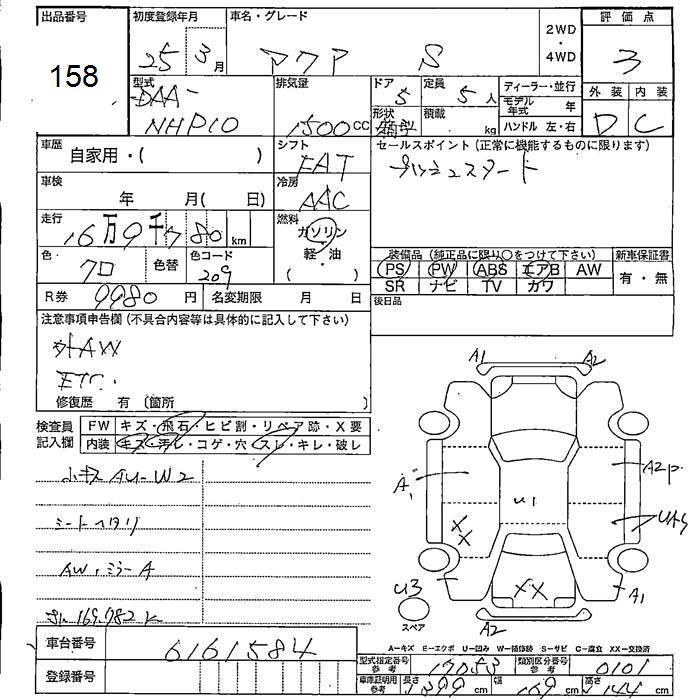 出品番号 158
初度登録年月 25 3月
車名・グレード アクア S
2WD・4WD
評価点 3
型式 DAA- NHP10
排気量 1500cc
ドア 5
形状
定員 5人
積載 kg
ディーラー・並行
モデル年式 年
ハンドル 左・右
外装 D
内装 C
車歴 自家用・( )
シフト FAT
セールスポイント(正常に機能するものに限ります)
プッシュスタート
車検 年 月( 日)
冷房 AAC
走行 16万9千780km
燃料 ガソリン 軽・油 ( )
色 クロ
色替
色コード 209
装備品(純正品に限り○をつけて下さい)
PS PW ABS エアB AW
SR ナビ TV カワ
新車保証書 有・無
R券 9980円
名変期限 月 日
後日品
注意事項申告欄(不具合内容等は具体的に記入して下さい)
外AW
ETC.
修復歴 有 〔箇所 〕
検査員記入欄
FW キズ・飛石・ヒビ割・リペア跡・X要
内装 キズ・汚レ・コゲ・穴・スレ・キレ・破レ
小キズ AU-W2
シートヘタリ
AW、ミラーA
169,982K
A1 A2
A2P.
A
U1
XX
U3
XX
A1
スペア
A2
A-キズ E-エクボ U-凹み W-補修跡 S-サビ C-腐食 XX-交換済
車台番号 6161584
登録番号
型式指定番号 参考 17053
類別区分番号 参考 0101
車庫証明用 参考 長さ 399cm 幅 169cm 高さ 144cm